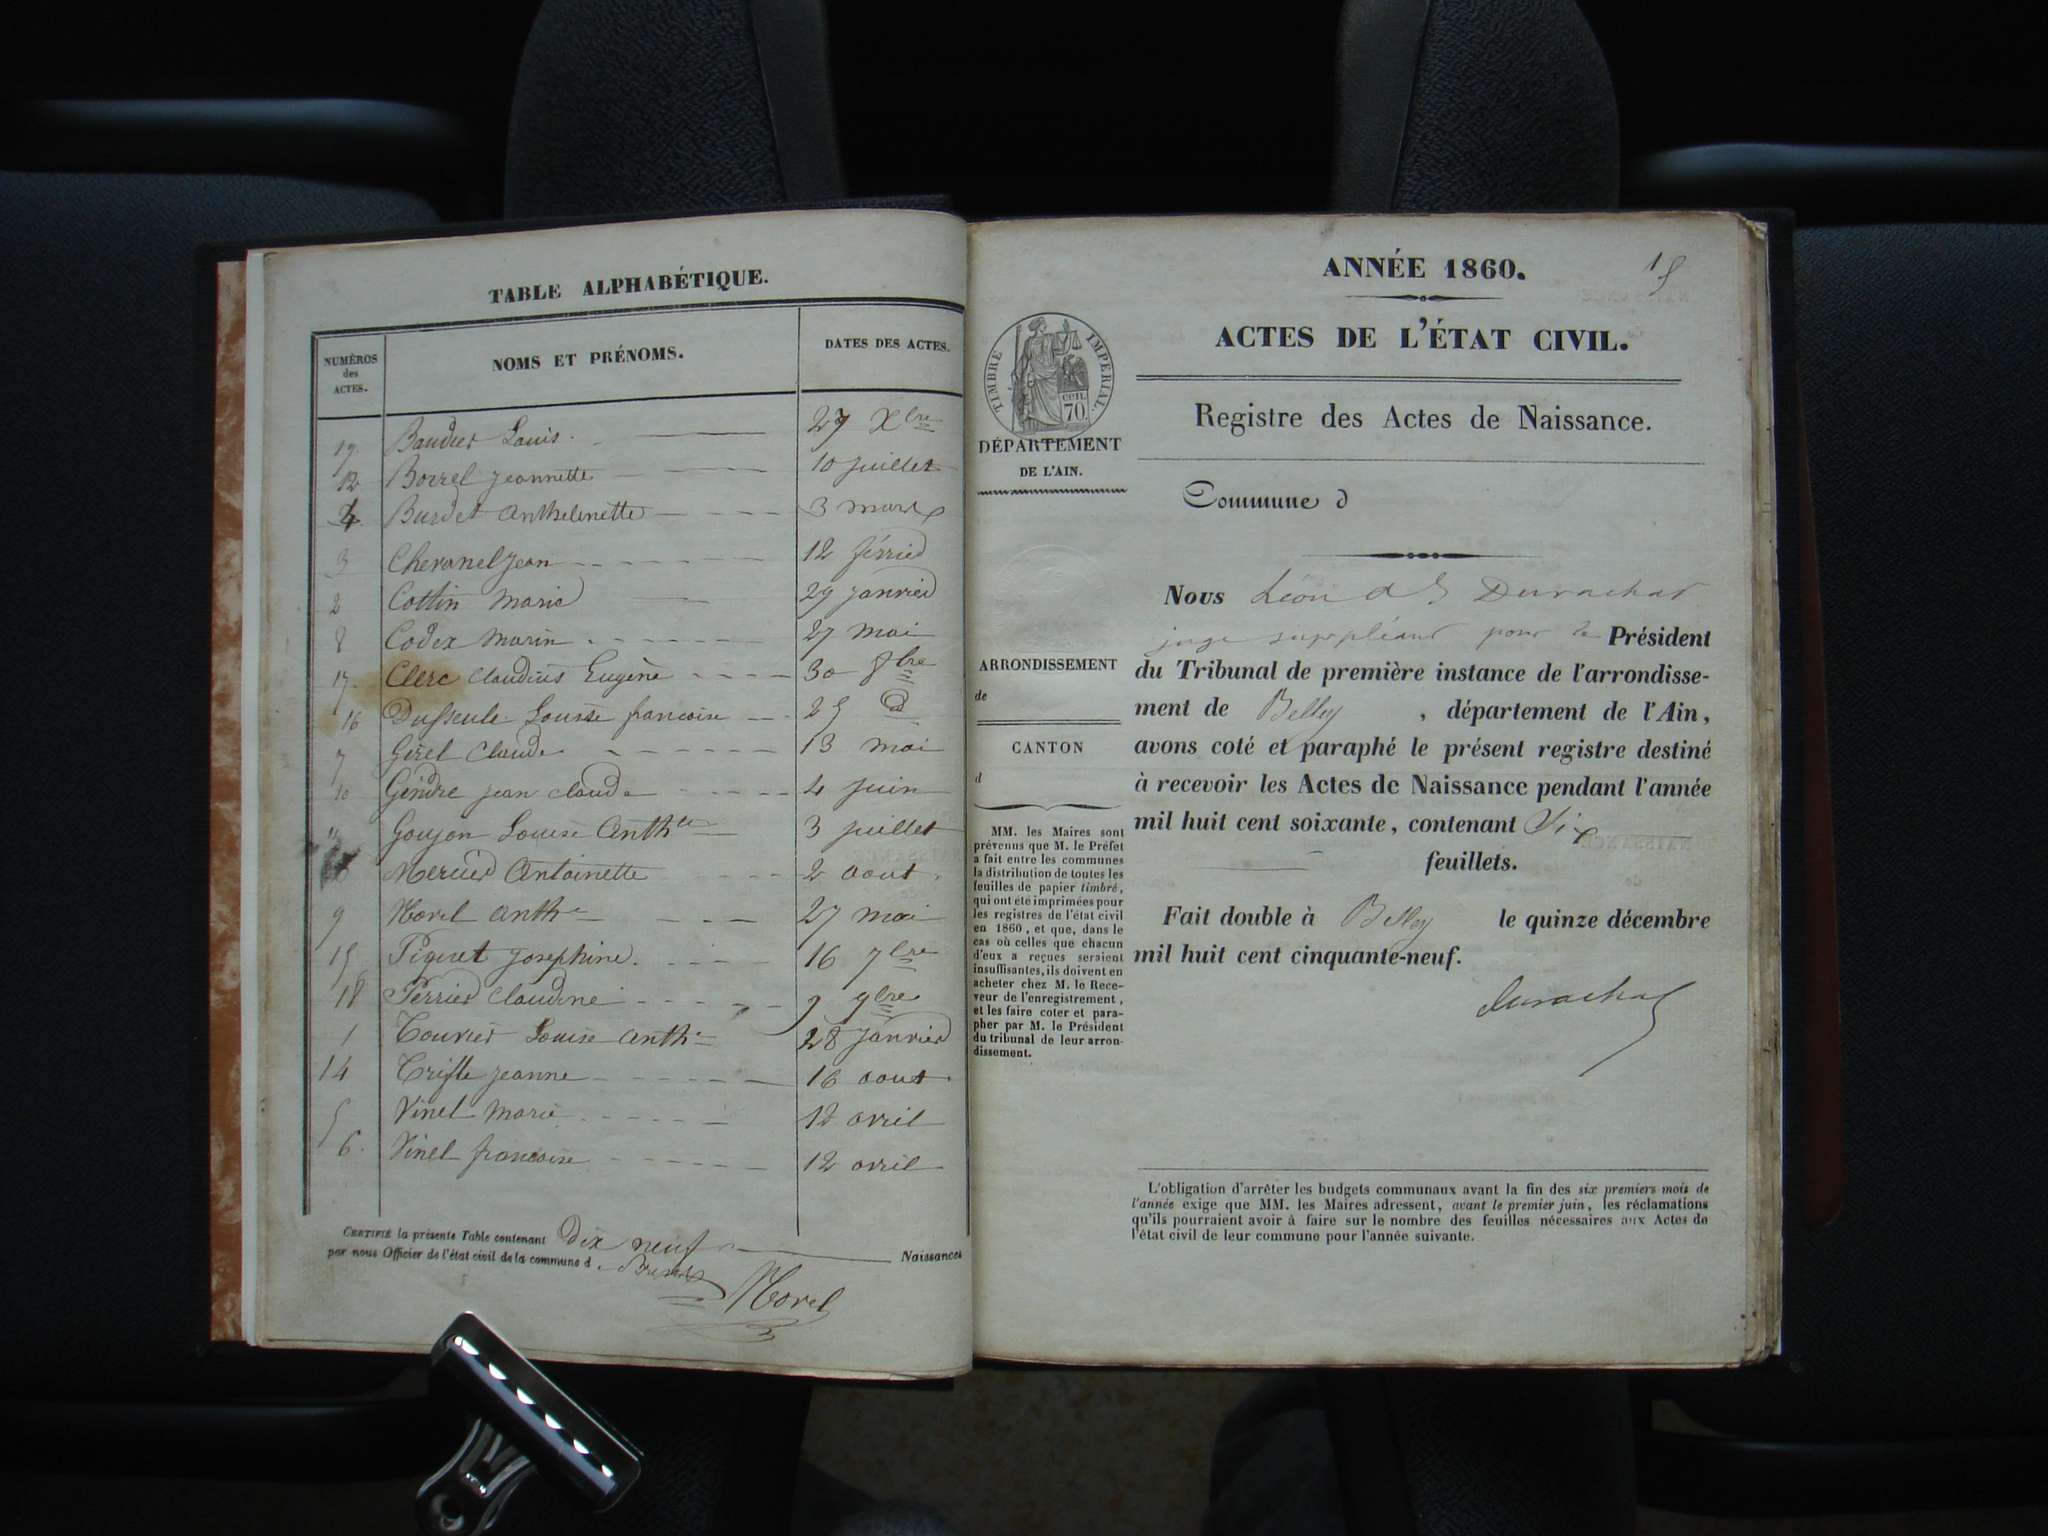 TABLE ALPHABÉTIQUE.
NUMÉROS des ACTES. NOMS ET PRÉNOMS. DATES DES ACTES.
19. Baudier Louis. 27 Xbre
12 Borrel Jeannette 10 juillet
4 Burdet Anthelmette 3 mars
3 Chevanel Jean 12 février
2 Cottin Maria 29 janvier
8 Codex Marin 27 mai
17. Clerc Claudius Eugène 30 8bre
16 Louise françoise 25 d
7 Girel Claude 13 mai
10 Gendre jean claude 4 juin
11 Goujon Louise Anthte 3 juillet
Mercier Antoinette 2 aout.
9 Morel Anthe 27 mai
15 Piguet Josephine. 16 7bre
18 Perrier Claudine 9 9bre
1 Louise Anthe 28 janvier
14 jeanne 16 aout.
5 Vinel Marie 12 avril
6. Vinel françoise 12 avril
CERTIFIÉ la présente Table contenant Dix neuf Naissances
par nous Officier de l'état civil de la commune d
Morel
ANNÉE 1860.
15
ACTES DE L'ÉTAT CIVIL.
TIMBRE IMPÉRIAL.
CCIL
70.
Registre des Actes de Naissance.
DÉPARTEMENT
DE L'AIN.
Commune d
Nous Léon Durachat
juge suppléant pour le Président
du Tribunal de première instance de l'arrondisse-
ment de Belley , département de l'Ain,
avons coté et paraphé le présent registre destiné
à recevoir les Actes de Naissance pendant l'année
mil huit cent soixante, contenant Six
feuillets.
Fait double à Belley le quinze décembre
mil huit cent cinquante-neuf.
Durachat
ARRONDISSEMENT
de
CANTON
d
MM. les Maires sont
prévenus que M. le Préfet
a fait entre les communes
la distribution de toutes les
feuilles de papier timbré,
qui ont été imprimées pour
les registres de l'état civil
en 1860, et que, dans le
cas où celles que chacun
d'eux a reçues seraient
insuffisantes, ils doivent en
acheter chez M. le Rece-
veur de l'enregistrement,
et les faire coter et para-
pher par M. le Président
du tribunal de leur arron-
dissement.
L'obligation d'arrêter les budgets communaux avant la fin des six premiers mois de
l'année exige que MM. les Maires adressent, avant le premier juin, les réclamations
qu'ils pourraient avoir à faire sur le nombre des feuilles nécessaires aux Actes de
l'état civil de leur commune pour l'année suivante.